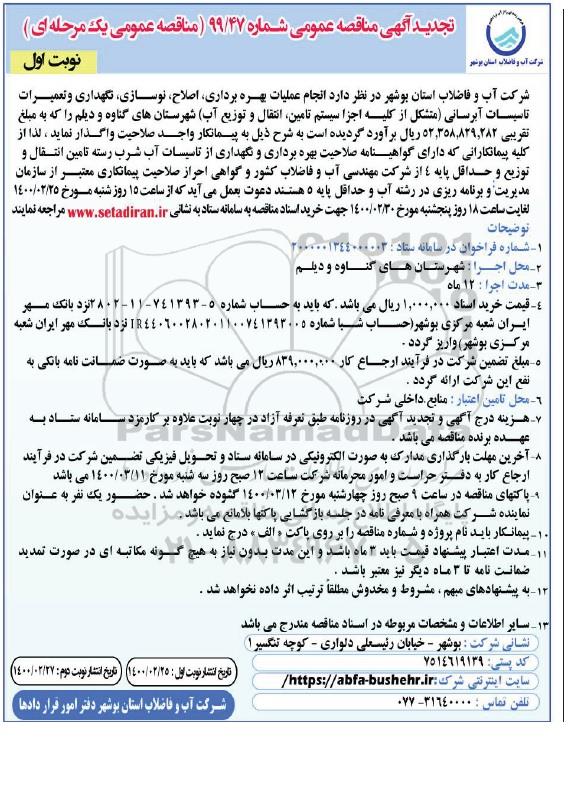 تجدید آگهی مناقصه عمومی شماره ۹۹/۴۷ (مناقصه عمومی یک مرحله ای)
شرکت آب و فاضلاب استان بوشهر
نوبت اول
شرکت آب و فاضلاب استان بوشهر در نظر دارد انجام عملیات بهره برداری، اصلاح، نوسازی، نگهداری وتعمیرات
تاسیسات آبرسانی (متشکل از کلیه اجزا سیستم تامین، انتقال و توزیع آب) شهرستان های گناوه و دیلم را که به مبلغ
تقریبی ۵۲,۳۵۸,۸۲۹,۲۸۲ ریال برآورد گردیده است به شرح ذیل به پیمانکار واجد صلاحیت واگذار نماید ، لذا از
کلیه پیمانکارانی که دارای گواهینامه صلاحیت بهره برداری و نگهداری از تاسیسات آب شرب رسته تامین انتقال و
توزیع و حداقل پایه ٤ از شرکت مهندسی آب و فاضلاب کشور و گواهی احراز صلاحیت پیمانکاری معتبر از سازمان
مدیریت و برنامه ریزی در رشته آب و حداقل پایه ۵ هستند دعوت بعمل می آید که از ساعت ۱۵ روز شنبه مورخ ۱۴۰۰/۰۲/۲۵
لغایت ساعت ۱۸ روز پنجشنبه مورخ ۱۴۰۰/۰۲/۳۰ جهت خرید اسناد مناقصه به سامانه ستاد به نشانی www.setadiran.ir مراجعه نمایند
توضیحات
۱- شماره فراخوان در سامانه ستاد : ۲۰۰۰۰۰۱۳۴۴۰۰۰۰۰۳
۲- محل اجرا : شهرستان های گناوه و دیلم
۳- مدت اجرا : ۱۲ ماه
۴- قیمت خرید اسناد ۱,۰۰۰,۰۰۰ ریال می باشد .که باید به حساب شماره ۵-۷۴۱۳۹۳-۱۱-۲۸۰۲ نزد بانک مهر
ایران شعبه مرکزی بوشهر(حساب شبا شماره IR۴۴۰۶۰۰۲۸۰۲۰۱۱۰۰۷۴۱۳۹۳۰۰۵ نزد بانک مهر ایران شعبه
مرکزی بوشهر) واریز گردد .
۵- مبلغ تضمین شرکت در فرآیند ارجاع کار ۸۳۹,۰۰۰,۰۰۰ ریال می باشد که باید به صورت ضمانت نامه بانکی به
نفع این شرکت ارائه گردد .
۶- محل تامین اعتبار : منابع داخلی شرکت
۷- هزینه درج آگهی و تجدید آگهی در روزنامه طبق تعرفه آزاد در چهار نوبت علاوه بر کارمزد سامانه ستاد به
عهده برنده مناقصه می باشد .
۸- آخرین مهلت بارگذاری مدارک به صورت الکترونیکی در سامانه ستاد و تحویل فیزیکی تضمین شرکت در فرآیند
ارجاع کار به دفتر حراست و امور محرمانه شرکت ساعت ۱۲ صبح روز سه شنبه مورخ ۱۴۰۰/۰۳/۱۱ می باشد
۹- پاکتهای مناقصه در ساعت ۹ صبح روز چهارشنبه مورخ ۱۴۰۰/۰۳/۱۲ گشوده خواهد شد . حضور یک نفر به عنوان
نماینده شرکت همراه با معرفی نامه در جلسه بازگشایی پاکتها بلامانع می باشد .
۱۰- پیمانکار باید نام پروژه و شماره مناقصه را بر روی پاکت « الف » درج نماید .
۱۱- مدت اعتبار پیشنهاد قیمت باید ۳ ماه باشد و این مدت بدون نیاز به هیچ گونه مکاتبه ای در صورت تمدید
ضمانت نامه تا ۳ ماه دیگر نیز معتبر باشد .
۱۲- به پیشنهادهای مبهم ، مشروط و مخدوش مطلقاً ترتیب اثر داده نخواهد شد .
۱۳- سایر اطلاعات و مشخصات مربوطه در اسناد مناقصه مندرج می باشد
نشانی شرکت : بوشهر - خیابان رئیسعلی دلواری - کوچه تنگسیر ۱
کد پستی: ۷۵۱۴۶۱۹۱۳۹
سایت اینترنتی شرکت: https://abfa-bushehr.ir/
تلفن تماس : ۳۱۶۴۰۰۰۰-۰۷۷
تاریخ انتشار نوبت اول : ۱۴۰۰/۰۲/۲۵
تاریخ انتشار نوبت دوم : ۱۴۰۰/۰۲/۲۷
شرکت آب و فاضلاب استان بوشهر دفتر امور قرار دادها